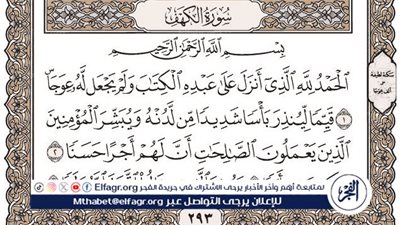 سُورَةُ الكَهْفِ
بِسْمِ اللَّهِ الرَّحْمَٰنِ الرَّحِيمِ
الْحَمْدُ لِلَّهِ الَّذِي أَنزَلَ عَلَىٰ عَبْدِهِ الْكِتَابَ وَلَمْ يَجْعَل لَّهُ عِوَجَا
١ قَيِّمًا لِّيُنذِرَ بَأْسًا شَدِيدًا مِّن لَّدُنْهُ وَيُبَشِّرَ الْمُؤْمِنِينَ
الَّذِينَ يَعْمَلُونَ الصَّالِحَاتِ أَنَّ لَهُمْ أَجْرًا حَسَنًا ٢
لمتابعة أهم وأخر الأخبار يرجى الاشتراك في جريدة الفجر Elfagr.org
للإعلان يرجى التواصل عبر Mthabet@elfagr.org
الفجر
٢٩٣